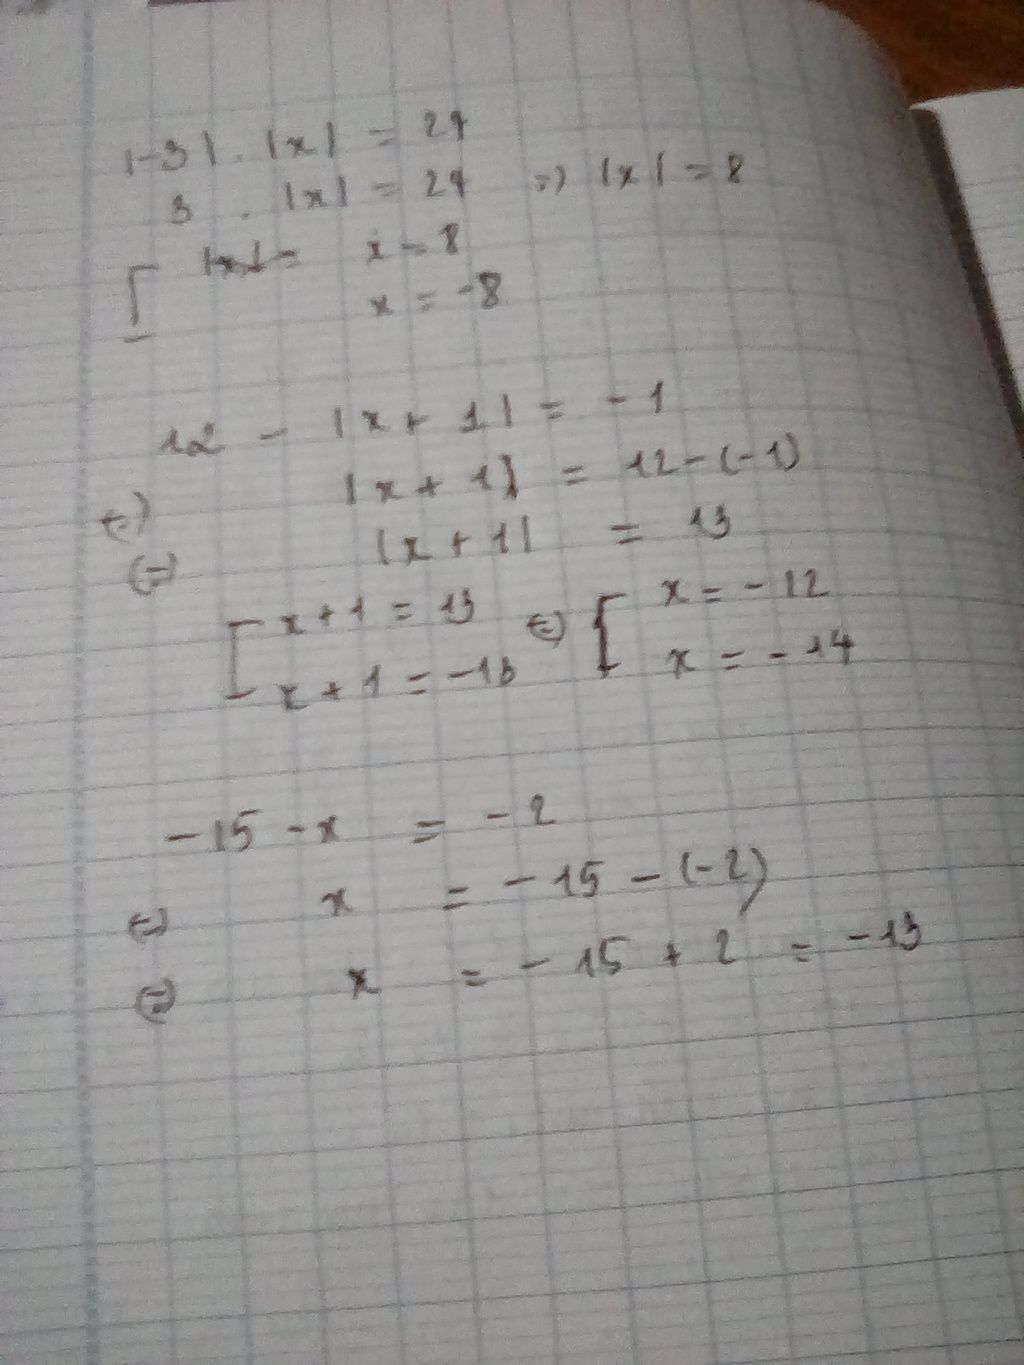 |-3| . |x| = 24
3 . |x| = 24 => |x| = 8
[ x = 8
x = -8
12 - |x + 1| = -1
(=) |x + 1| = 12 - (-1)
(=) |x + 1| = 13
[ x + 1 = 13 (=) { x = -12
x + 1 = -13 x = -14
-15 - x = -2
(=) x = -15 - (-2)
(=) x = -15 + 2 = -13